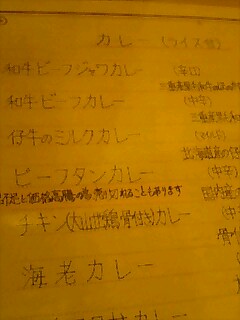 カレー (ライス付)
和牛ビーフジャワカレー (辛口)
和牛ビーフカレー (中辛)
仔牛のミルクカレー (マイルド)
北海道産の仔
ビーフタンカレー (中辛)
と価格高騰の為、売り切れることもあります
国内産
チキン(大山地鶏骨付き)カレー (中
骨
海老カレー (中